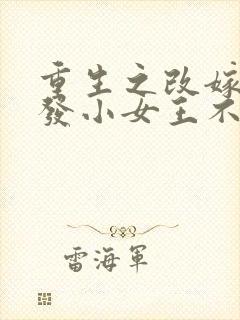 重生之改嫁
發小女主不
雷海軍